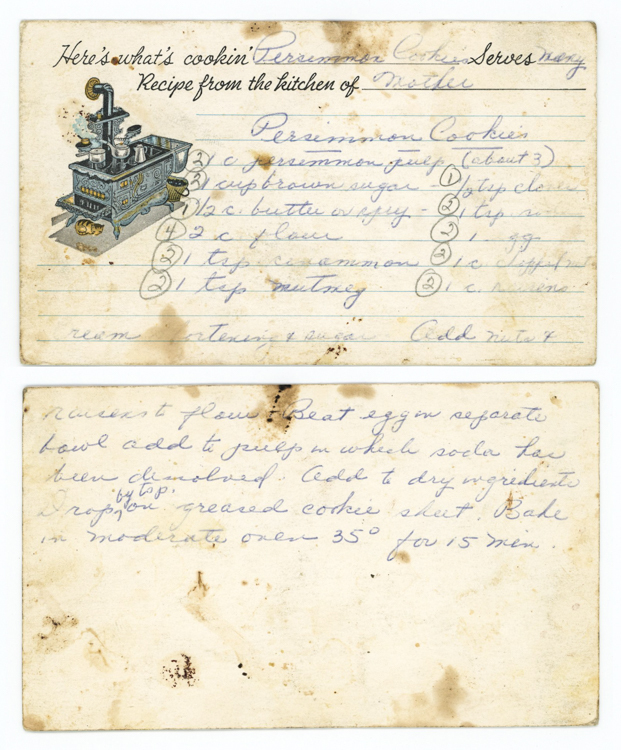 Here's what's cookin' Persimmon Cookies Serves many
Recipe from the kitchen of Mother
Persimmon Cookies
② 1 c persimmon pulp (about 3)
② 1 cup brown sugar - ① 1/2 tsp cloves
① 1/2 c. butter or - ② 1 tsp
④ 2 c flour ② 1 egg
② 1 tsp cinnammon ② 1 c
② 1 tsp nutmeg ② 1 c. raisens
ream ortening & sugar Add nuts &
raisens to flour & Beat egg in separate
bowl add to pulp in which soda has
been dissolved. Add to dry ingredients
Drop by tsp. on greased cookie sheet. Bake
in moderate oven 35° for 15 min.